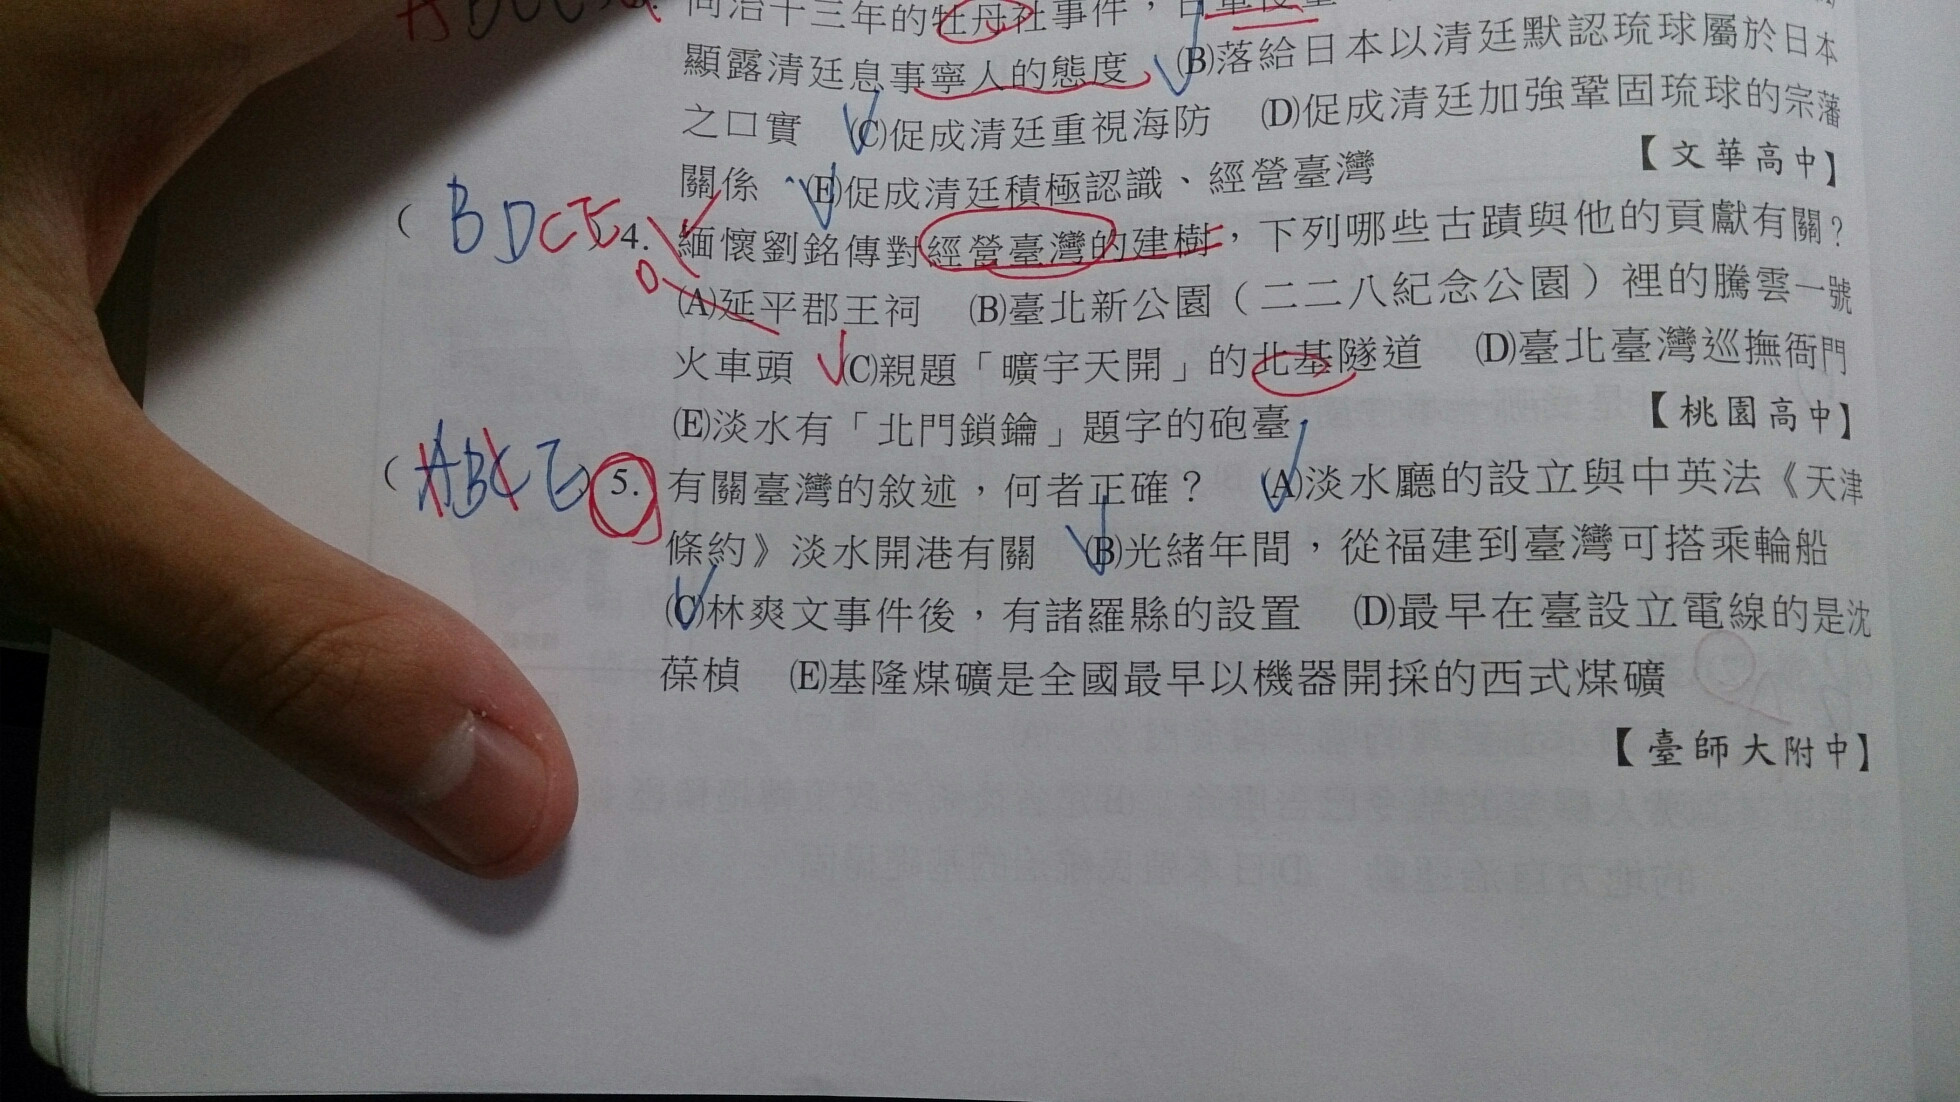 同治十三年的牡丹社事件,日軍侵臺
顯露清廷息事寧人的態度 (B)落給日本以清廷默認琉球屬於日本
之口實 (C)促成清廷重視海防 (D)促成清廷加強鞏固琉球的宗藩
關係 (E)促成清廷積極認識、經營臺灣 【文華高中】
( BDCE 4. 緬懷劉銘傳對經營臺灣的建樹,下列哪些古蹟與他的貢獻有關?
(A)延平郡王祠 (B)臺北新公園(二二八紀念公園)裡的騰雲一號
火車頭 (C)親題「曠宇天開」的北基隧道 (D)臺北臺灣巡撫衙門
(E)淡水有「北門鎖鑰」題字的砲臺 【桃園高中】
( ABCE ) 5. 有關臺灣的敘述,何者正確? (A)淡水廳的設立與中英法《天津
條約》淡水開港有關 (B)光緒年間,從福建到臺灣可搭乘輪船
(C)林爽文事件後,有諸羅縣的設置 (D)最早在臺設立電線的是沈
葆楨 (E)基隆煤礦是全國最早以機器開採的西式煤礦
【臺師大附中】